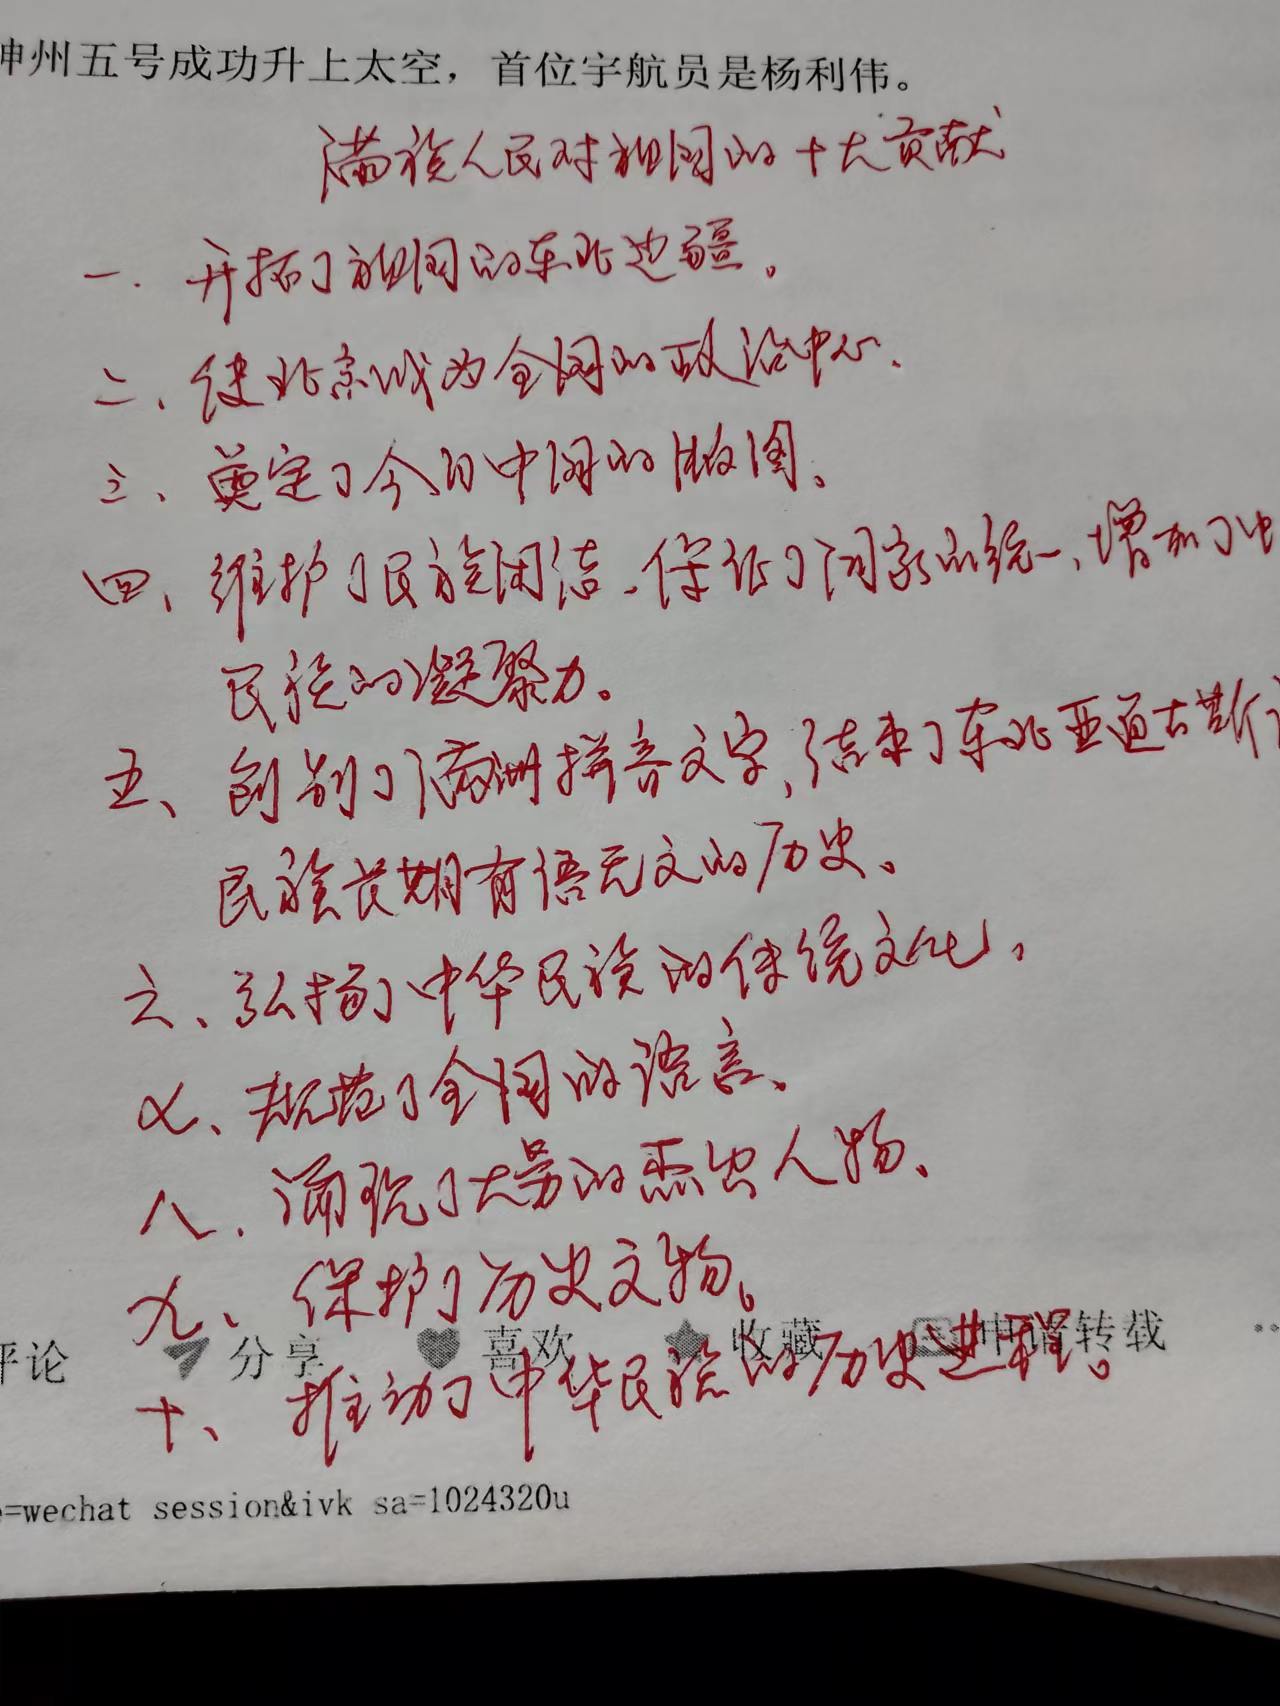 神州五号成功升上太空，首位宇航员是杨利伟。
满族人民对祖国的十大贡献
一、开拓了祖国的东北边疆。
二、使北京成为全国的政治中心、
三、奠定了今日中国的版图、
四、维护了民族团结、保证了国家的统一、增加了中
民族的凝聚力。
五、创制了满洲拼音文字，结束了东北亚通古斯
民族长期有语无文的历史、
六、弘扬了中华民族的传统文化，
七、规范了全国的语言、
八、涌现了大量的杰出人物、
九、保护了历史文物。
评论 分享 喜欢 收藏 申请转载
十、推动了中华民族的历史进程。
=wechat session&ivk sa=1024320u